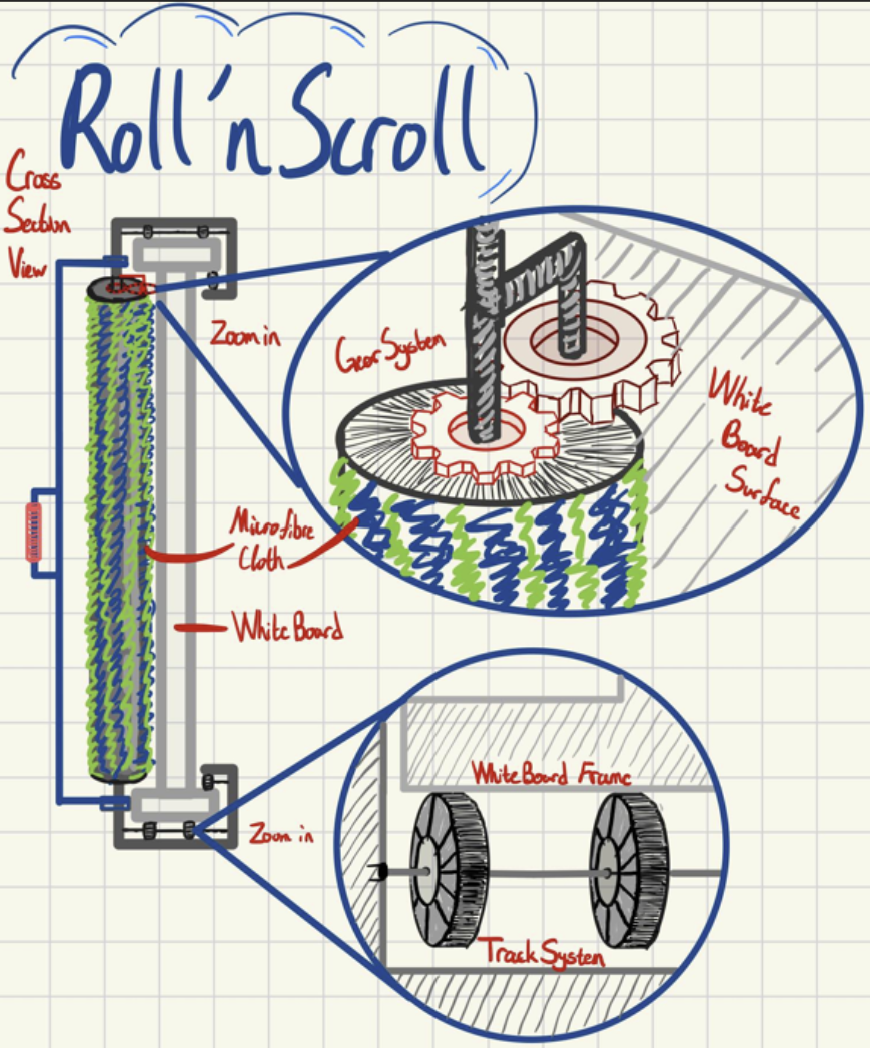 Roll'n Scroll
Cross
Section
View
Zoom in
Gear System
White
Board
Surface
Microfibre
Cloth
White Board
White Board Frame
Zoom in
Track System